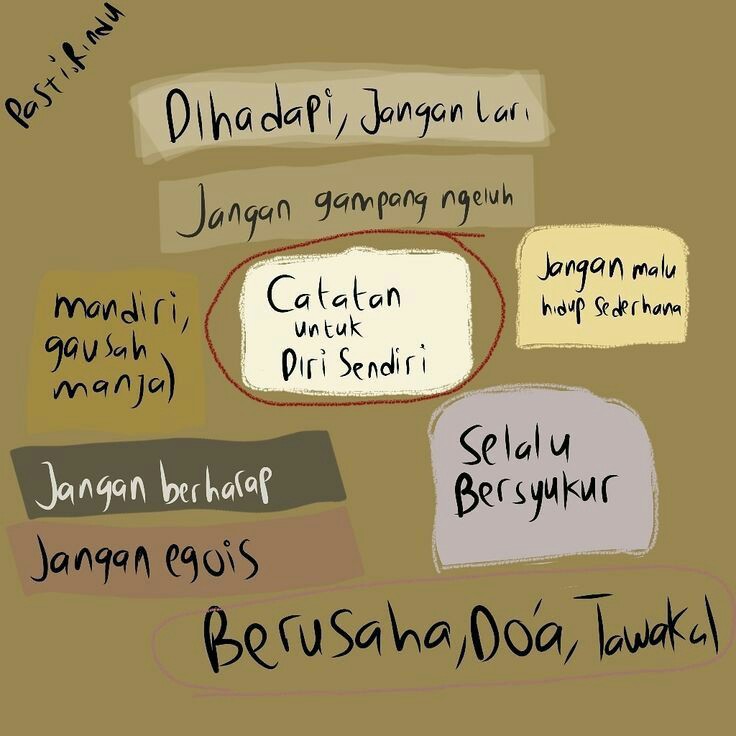 Pasti.Rindu
Dihadapi, Jangan Lari
Jangan gampang ngeluh
Catatan
untuk
Diri Sendiri
Jangan malu
hidup sederhana
mandiri,
gausah
manja)
Selalu
Bersyukur
Jangan berharap
Jangan egois
Berusaha, Do'a, Tawakal